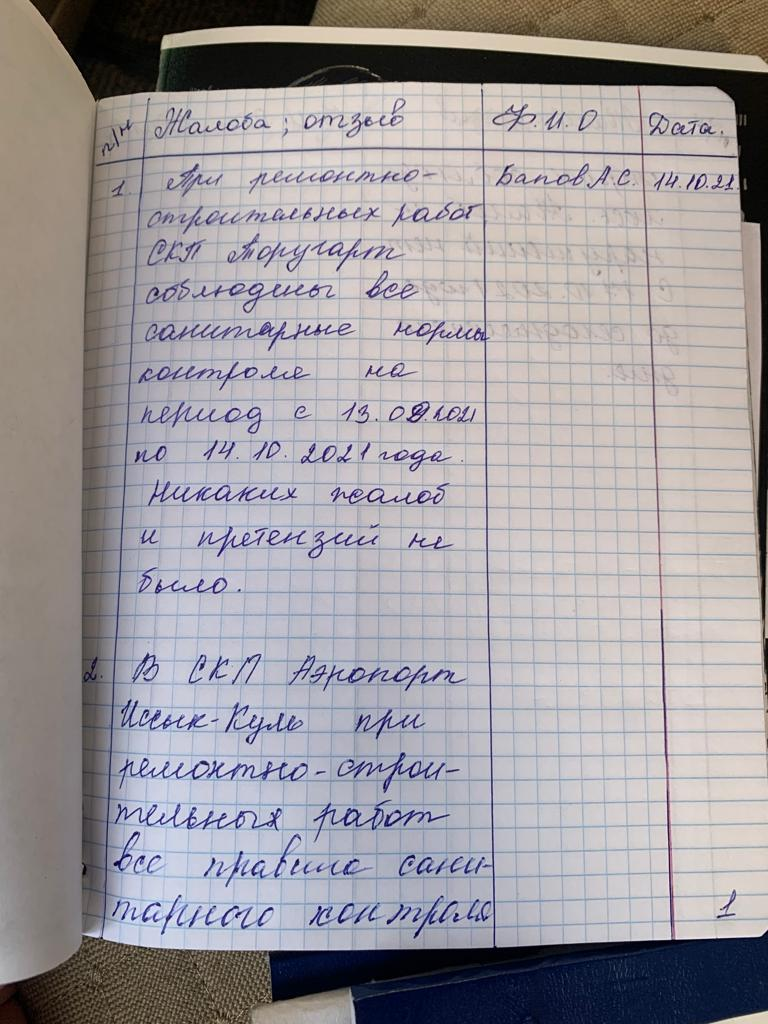 п/н Жалоба; отзыв Ф.И.О Дата.
1. При ремонтно- Бапов А.С. 14.10.21.
строительных работ
СКП Торугарт
соблюдены все
санитарные нормы
контроля на
период с 13.09.2021
по 14.10.2021 года.
Никаких жалоб
и претензий не
было.
2. В СКП Аэропорт
Иссык-Куль при
ремонтно-строи-
тельных работ
все правила сани-
тарного контроля
1